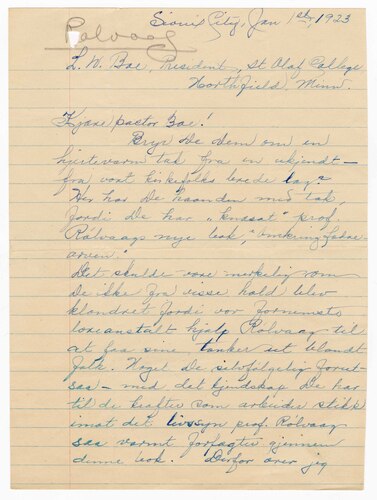 Rølvaag
Sioux City, Jan 1st, 1923
L. W. Boe, President, St Olaf College
Northfield, Minn.
Kjære pastor Boe!
Bryr De dem om en
hjertevarm tak fra en ukjendt —
fra vort kirkefolks brede lag?
Her har De haanden med tak,
fordi De har "knssat" prof.
Rølvaags nye bok, "Omkring fædre
arven".
Det skulde være merkelig om
De ikke fra visse hold blev
klandret fordi vor fornemste
læreanstalt hjalp Rølvaag til
at faa sine tanker ut blandt
folk. Noget De selvfølgelig forut-
saa — med det kjendskap De har
til de krafter som arbeider stikk
imot det livssyn prof. Rølvaag
saa varmt forfagter gjennem
denne bok. Derfor ærer jeg